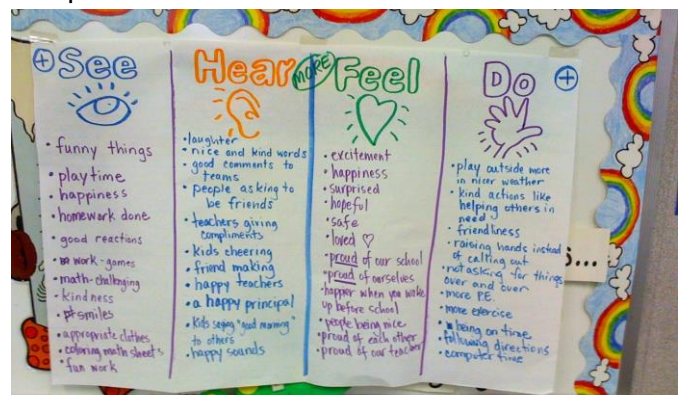 ⊕ See
• funny things
• playtime
• happiness
• homework done
• good reactions
• work-games
• math-challenging
• kindness
• smiles
• appropriate clothes
• coloring math sheets
• fun work
Hear
• laughter
• nice and kind words
• good comments to
teams
• people asking to
be friends
• teachers giving
compliments
• kids cheering
• friend making
• happy teachers
• a happy principal
• kids saying "good morning"
to others
• happy sounds
MORE
Feel
• excitement
• happiness
• surprised
• hopeful
• safe
• loved ♡
• proud of our school
• proud of ourselves
• happier when you woke
up before school
• people being nice
• proud of each other
• proud of our teacher
Do ⊕
• play outside more
in nicer weather
• kind actions like
helping others in
need
• friendliness
• raising hands instead
of calling out
• not asking for things
over and over
• more P.E.
• more exercise
• being on time
• following directions
• computer time
s...